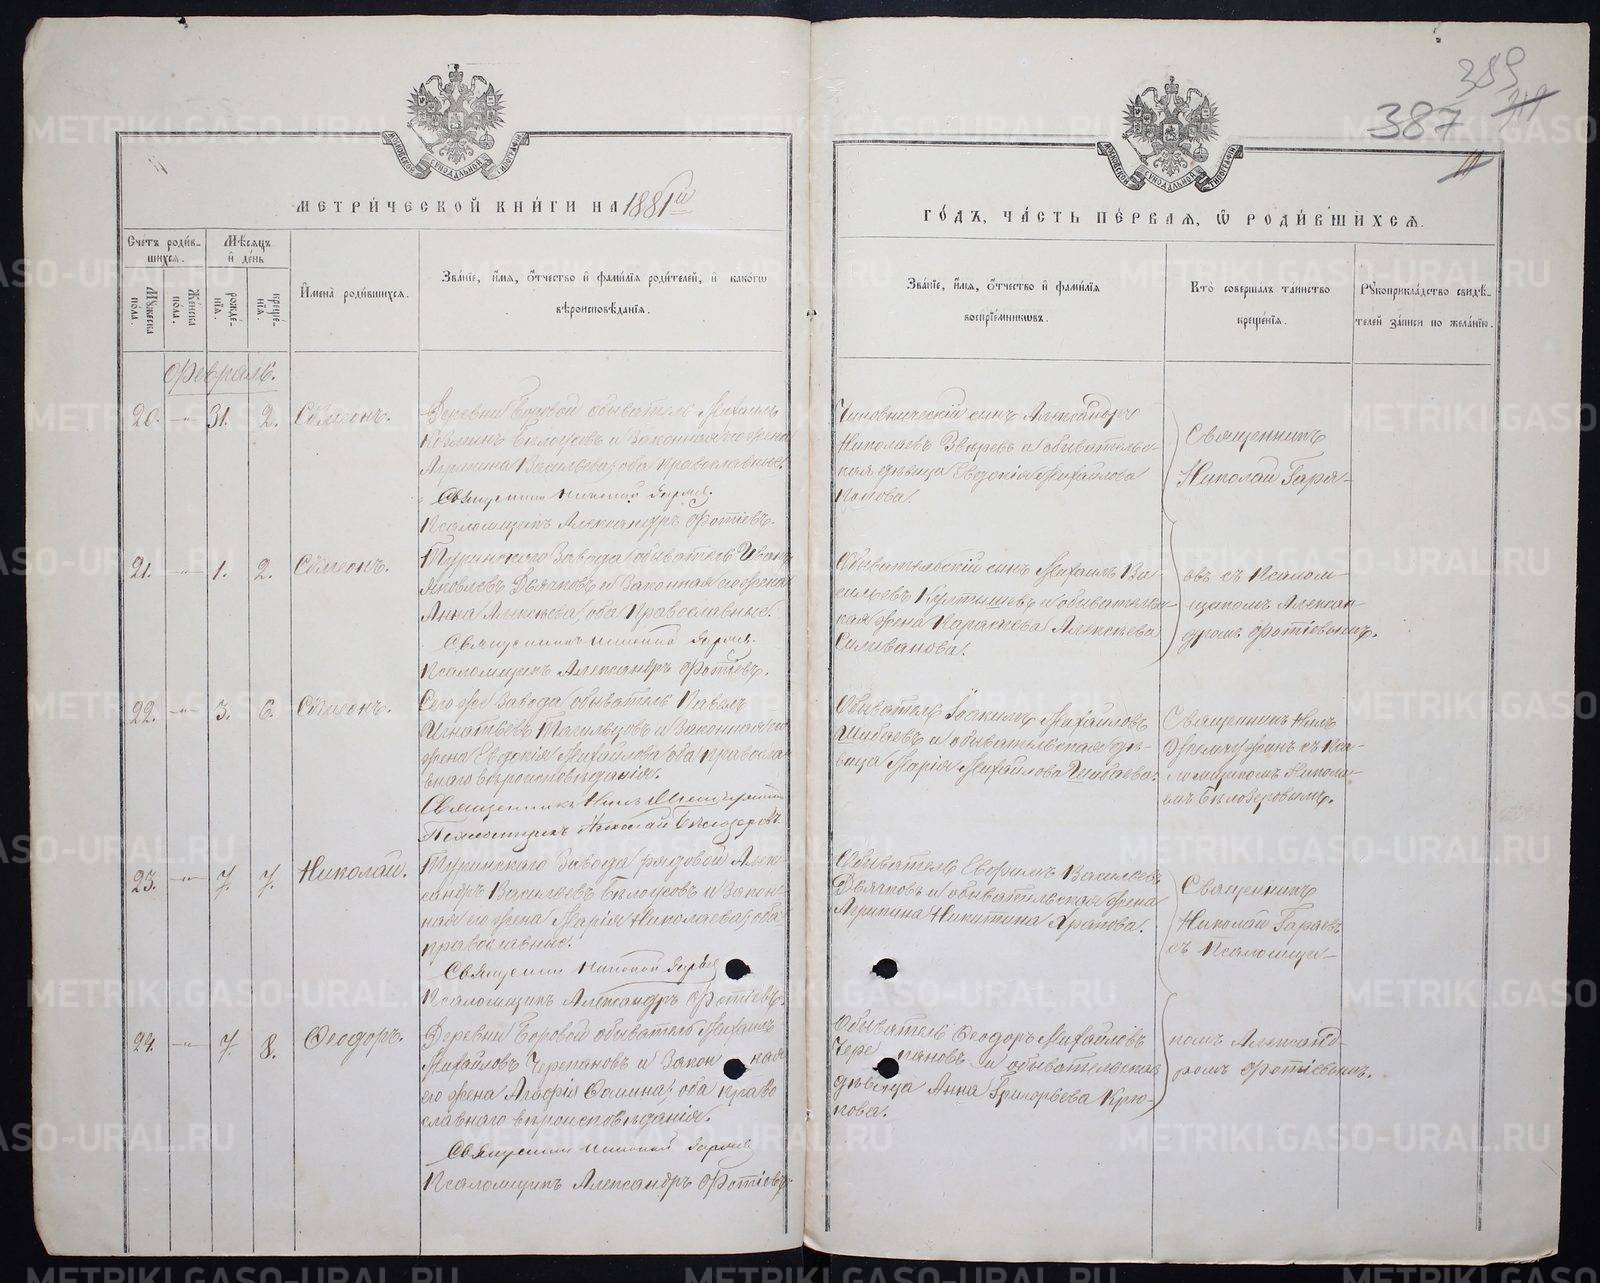 389
387
МЕТРИ́ЧЕСКОЙ КНИ́ГИ НА 1881й
ГО́ДЪ, ЧА́СТЬ ПЕ́РВАЯ, Ѿ РОДИ́ВШИХСЯ.
Счетъ роди́в-
шихся.
Мѣсяцъ
и҆ день
Мꙋжеска
пола.
Же́нска
пола.
рожде́-
нїя.
креще́-
нїя.
И҆мена̀ роди́вшихся.
Зва́нїе, и҆́мя, ѻ҆́тчество и҆ фами́лїя роди́телей, и҆ како́гѡ
вѣроисповѣ́данїя.
Зва́нїе, и҆́мя, ѻ҆́тчество и҆ фами́лїя
воспрїе́мникѡвъ.
Кто̀ соверша́лъ та́инство
креще́нїя.
Рꙋкоприкла́дство свидѣ́-
телей за́писи по жела́нїю.
Февраль.
20. -"- 31. 2. Сѵмеонъ.
Деревни Боровой обыватель Михаилъ
Козминъ Бѣлоусовъ и законная его жена
Агрипина Васильева, оба православные.
Священникъ Николай Гаряевъ
Псаломщикъ Александръ Фотіевъ.
Чиновническій сынъ Александръ
Николаевъ Звѣревъ и обывательс-
кая дѣвица Евдокія Михайлова
Попова.
Священникъ
Николай Гаря-
21. -"- 1. 2. Сѵмеонъ.
Туринскаго завода обыватель Иванъ
Яковлевъ Дьячковъ и законная его жена
Анна Алексѣева, оба Православные.
Священникъ Николай Гаряевъ
Псаломщикъ Александръ Фотіевъ.
Обывательскій сынъ Михаилъ Ва-
сильевъ Култышевъ и обывательс-
кая жена Параскева Алексѣева
Селиванова.
евъ съ Псалом-
щикомъ Алексан-
дромъ Фотіевымъ.
22. -"- 3. 6. Сѵмеонъ.
Сего же завода обыватель Павелъ
Игнатьевъ Тагильцовъ и законная его
жена Евдокія Михайлова оба православ-
наго вѣроисповѣданія.
Священникъ Нилъ
Псаломщикъ Николай Бѣлозеровъ
Обыватель Іоакимъ Михайловъ
Шибаевъ и обывательская дѣ-
вица Марія Михайлова Шибаева.
Священникъ Нилъ
съ Пса-
ломщикомъ Никола-
емъ Бѣлозеровымъ.
23. -"- 7. 7. Николай.
Туринскаго завода рядовой Алек-
сандръ Васильевъ Бѣлоусовъ и закон-
ная его жена Марія Николаева, оба
православные.
Священникъ Николай Гаряевъ
Псаломщикъ Александръ Фотіевъ.
Обыватель Евфимъ Васильевъ
Дьячковъ и обывательская жена
Агрипина Никитина Храпова.
Священникъ
Николай Гаряевъ
съ Псаломщи-
24. -"- 7. 8. Ѳеодоръ.
Деревни Боровой обыватель Михаилъ
Михайловъ Черепановъ и законная
его жена Агафія Ѳомина, оба право
славнаго вѣроисповѣданія.
Священникъ Николай Гаряевъ
Псаломщикъ Александръ Фотіевъ
Обыватель Ѳеодоръ Михайловъ
Черепановъ и обывательская
дѣвица Анна Григорьева Крю-
кова.
комъ Александ-
ромъ Фотіевымъ.